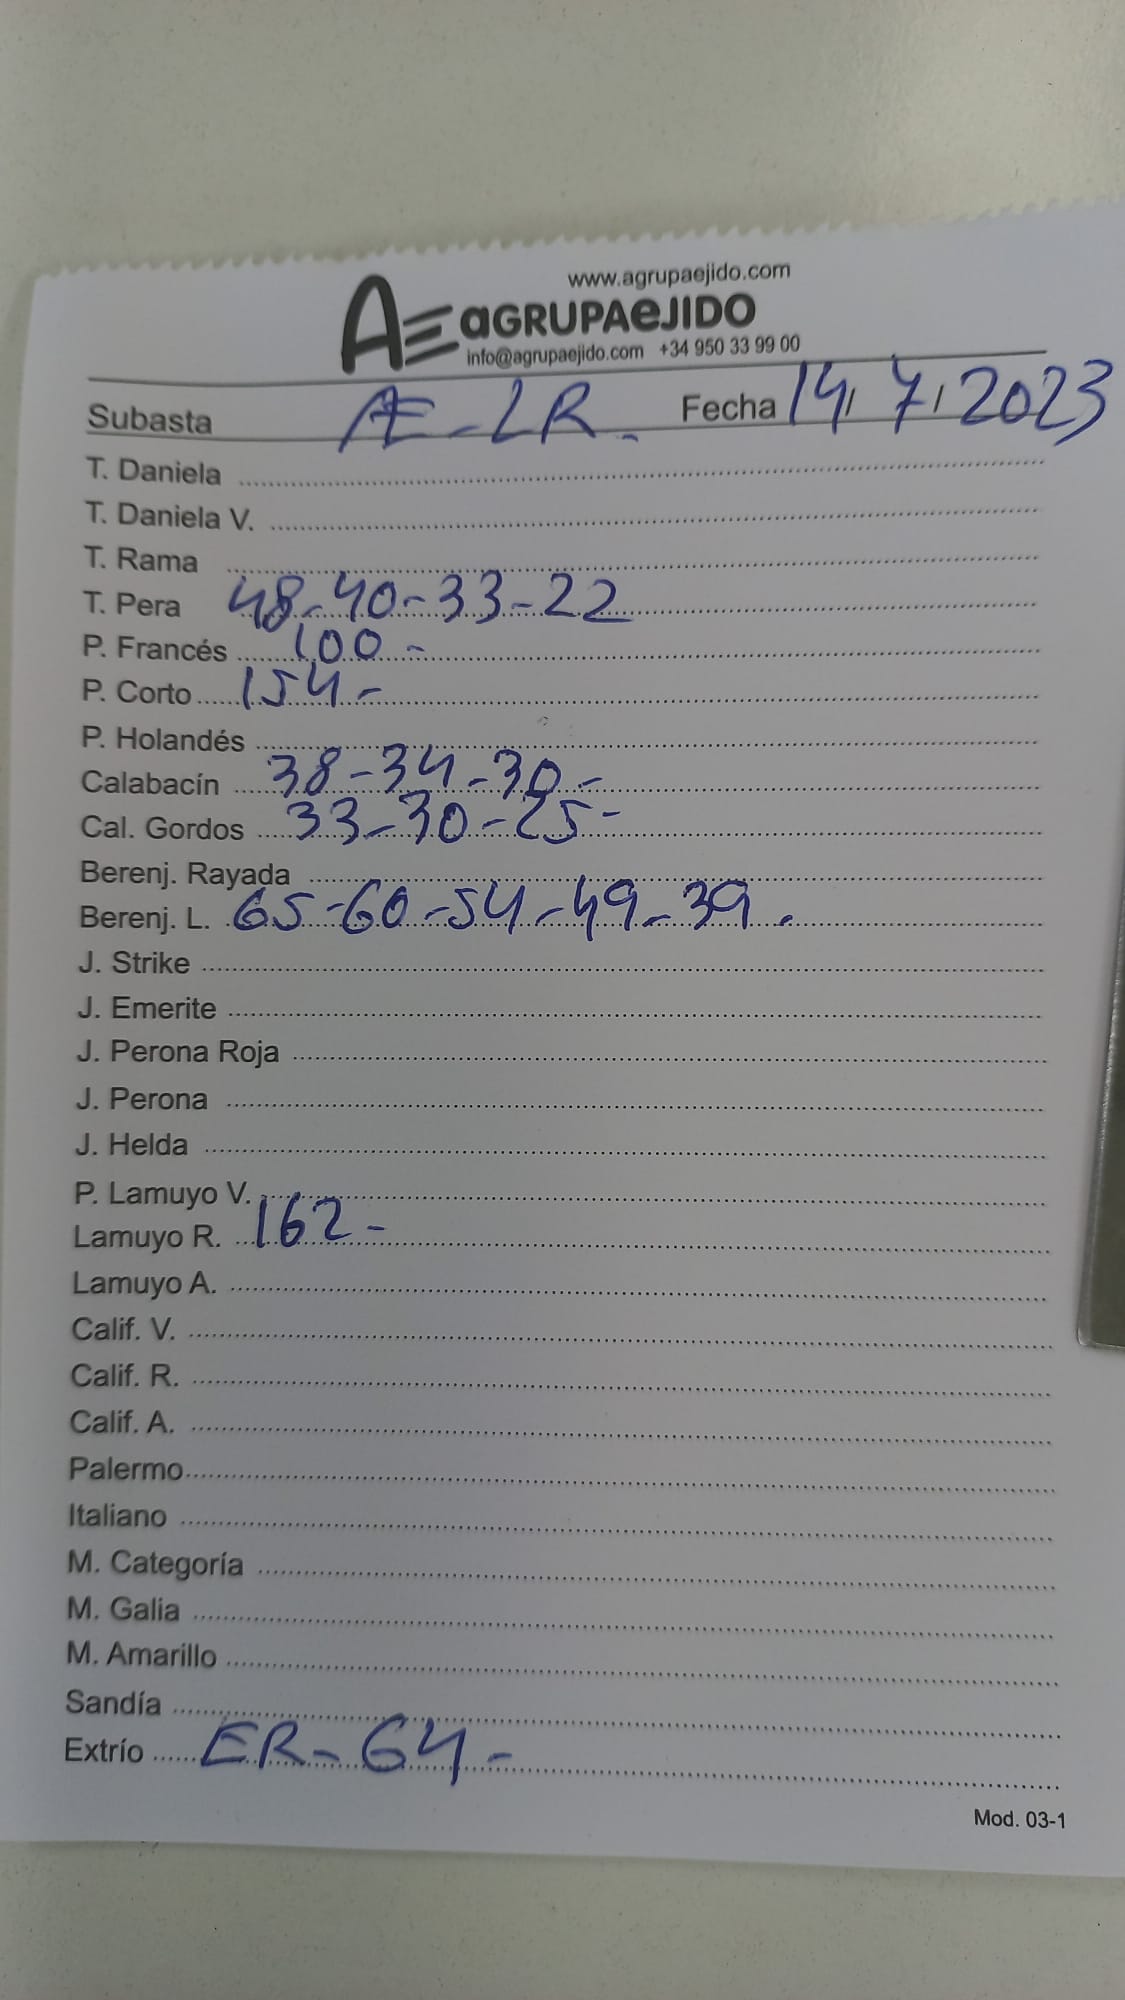 www.agrupaejido.com
AE aGRUPAeJIDO
info@agrupaejido.com +34 950 33 99 00
Subasta AE-LR. Fecha 14/7/2023
T. Daniela
T. Daniela V.
T. Rama
T. Pera 48-40-33-22
P. Francés 100-
P. Corto 154-
P. Holandés
Calabacín 38-34-30.-
Cal. Gordos 33-30-25-
Berenj. Rayada
Berenj. L. 65-60-54-49-39.
J. Strike
J. Emerite
J. Perona Roja
J. Perona
J. Helda
P. Lamuyo V.
Lamuyo R. 162-
Lamuyo A.
Calif. V.
Calif. R.
Calif. A.
Palermo
Italiano
M. Categoría
M. Galia
M. Amarillo
Sandía
Extrío ER-64-
Mod. 03-1